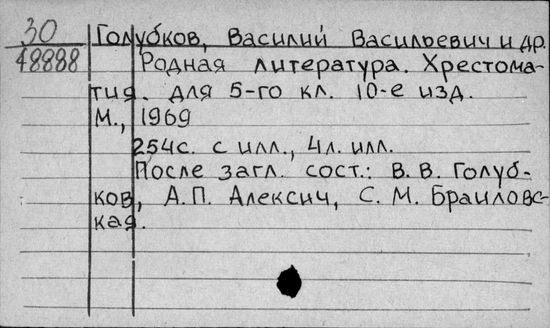 30 Голубков, Василий Васильевич и др.
48888 Родная литература. Хрестома-
тия. для 5-го кл. 10-е изд.
М., 1969
254с. с илл., 4л. илл.
После загл. сост.: В. В. Голуб-
ков, А.П. Алексич, С. М. Браиловс-
кая.